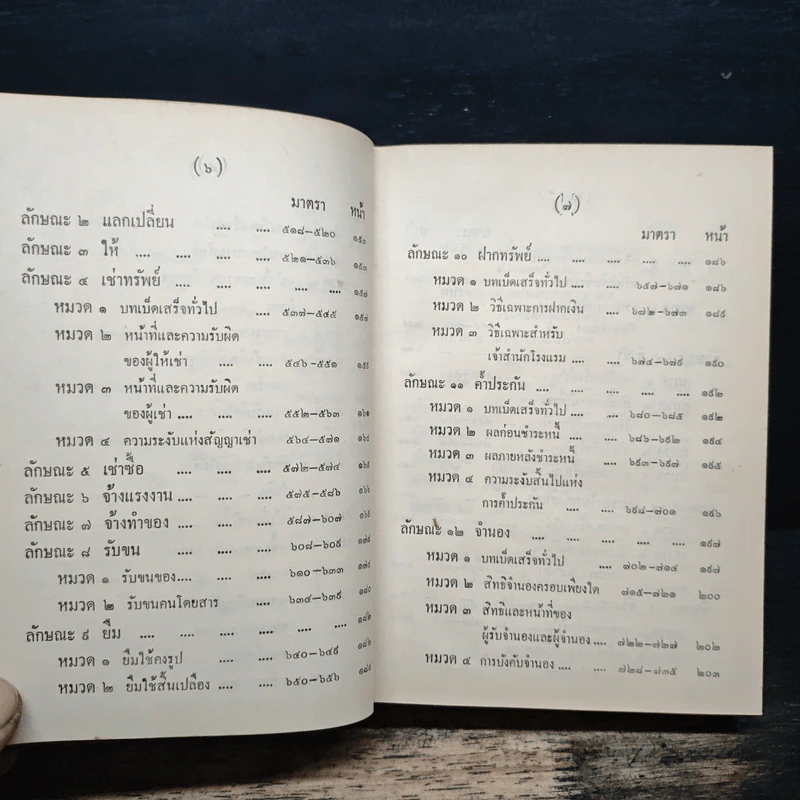 (๖)
มาตรา หน้า
ลักษณะ ๒ แลกเปลี่ยน .... .... ๕๑๘–๕๒๐ ๑๕๓
ลักษณะ ๓ ให้ .... .... .... .... ๕๒๑–๕๓๖ ๑๕๓
ลักษณะ ๔ เช่าทรัพย์ .... .... .... .... ....
หมวด ๑ บทเบ็ดเสร็จทั่วไป .... ๕๓๗–๕๔๕
หมวด ๒ หน้าที่และความรับผิด
ของผู้ให้เช่า .... ๕๔๖–๕๕๑
หมวด ๓ หน้าที่และความรับผิด
ของผู้เช่า .... .... .... ๕๕๒–๕๖๓
หมวด ๔ ความระงับแห่งสัญญาเช่า ๕๖๔–๕๗๑
ลักษณะ ๕ เช่าซื้อ .... .... .... ๕๗๒–๕๗๔
ลักษณะ ๖ จ้างแรงงาน .... .... .... ๕๗๕–๕๘๖
ลักษณะ ๗ จ้างทำของ .... .... .... ๕๘๗–๖๐๗
ลักษณะ ๘ รับขน .... .... .... ๖๐๘–๖๐๙
หมวด ๑ รับขนของ .... .... .... ๖๑๐–๖๓๓
หมวด ๒ รับขนคนโดยสาร .... ๖๓๔–๖๓๙ ๑๘๐
ลักษณะ ๙ ยืม .... .... .... .... .... .... ๑๘๒
หมวด ๑ ยืมใช้คงรูป .... .... ๖๔๐–๖๔๙ ๑๘๒
หมวด ๒ ยืมใช้สิ้นเปลือง .... .... ๖๕๐–๖๕๖
(๗)
มาตรา หน้า
ลักษณะ ๑๐ ฝากทรัพย์ .... .... .... .... .... ๑๘๖
หมวด ๑ บทเบ็ดเสร็จทั่วไป .... .... ๖๕๗–๖๗๑ ๑๘๖
หมวด ๒ วิธีเฉพาะการฝากเงิน .... ๖๗๒–๖๗๓ ๑๘๙
หมวด ๓ วิธีเฉพาะสำหรับ
เจ้าสำนักโรงแรม .... .... ๖๗๔–๖๗๙ ๑๙๐
ลักษณะ ๑๑ ค้ำประกัน .... .... .... .... .... ๑๙๒
หมวด ๑ บทเบ็ดเสร็จทั่วไป .... .... ๖๘๐–๖๘๕ ๑๙๒
หมวด ๒ ผลก่อนชำระหนี้ .... .... ๖๘๖–๖๙๒ ๑๙๔
หมวด ๓ ผลภายหลังชำระหนี้ .... ๖๙๓–๖๙๗ ๑๙๕
หมวด ๔ ความระงับสิ้นไปแห่ง
การค้ำประกัน .... .... ๖๙๘–๗๐๑ ๑๙๖
ลักษณะ ๑๒ จำนอง .... .... .... .... .... ๑๙๗
หมวด ๑ บทเบ็ดเสร็จทั่วไป .... ๗๐๒–๗๑๔ ๑๙๗
หมวด ๒ สิทธิจำนองครอบเพียงใด ๗๑๕–๗๒๑ ๒๐๐
หมวด ๓ สิทธิและหน้าที่ของ
ผู้รับจำนองและผู้จำนอง .... ๗๒๒–๗๒๗ ๒๐๒
หมวด ๔ การบังคับจำนอง .... .... ๗๒๘–๗๓๕ ๒๐๓